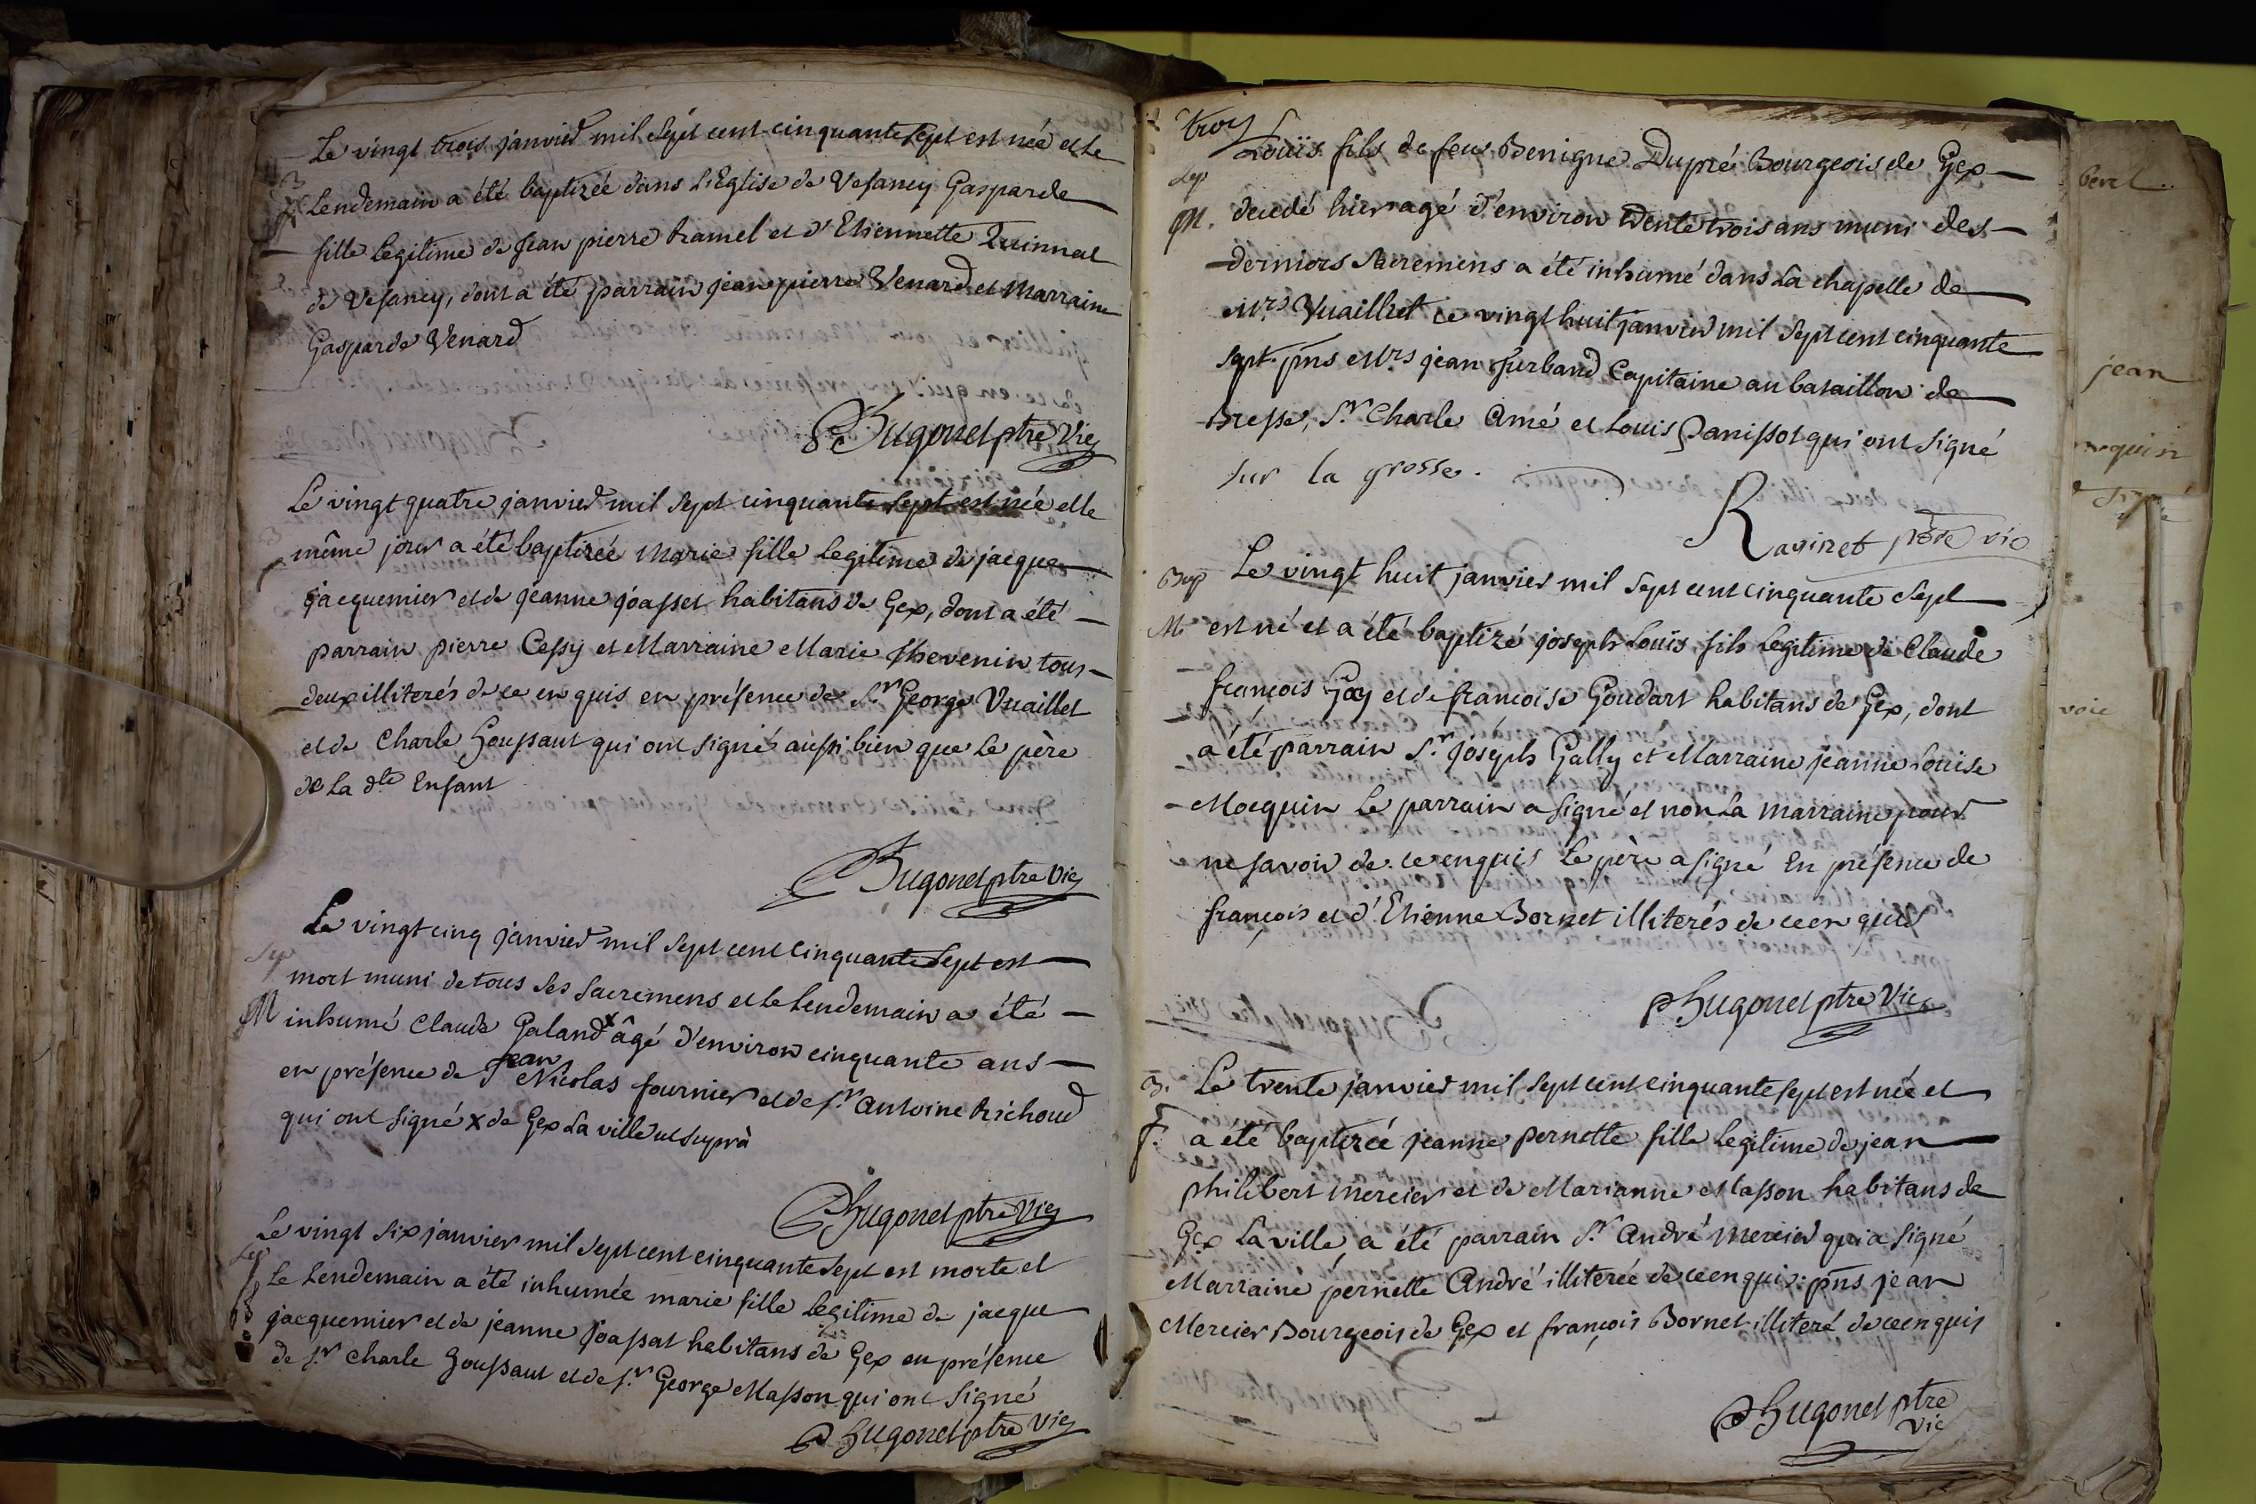 Le vingt trois janvier mil sept cent cinquante sept est née et le
B
f Lendemain a été baptizée dans L'Eglise de Vesancy Gasparde
fille legitime de jean pierre Ramel et d'Etiennette Quinnat
de Vesancy, dont a été parrain jean pierre Venard et Marraine
Gasparde Venard
Hugonet ptre Vic
Le vingt quatre janvier mil sept cinquante sept est née et le
même jour a été baptizée Marie fille legitime de jacque
jacquemier et de jeanne joasset habitans de Gex, dont a été
parrain pierre Cessy et Marraine Marie Thevenin tous
deux illiterés de ce enquis en présence de Sr George Vuaillet
et de Charle Goussaut qui ont signé aussi bien que Le père
de La dte Enfant
Hugonet ptre Vic
Le vingt cinq janvier mil sept cent cinquante sept est
Sep
mort muni de tous ses sacremens et le Lendemain a été
M inhumé Claude Galand x âgé d'environ cinquante ans
jean
en présence de Sr Nicolas fournier et de Sr antoine Richoud
qui ont signé x de Gex La ville ut suprà
Hugonet ptre Vic
Le vingt six janvier mil sept cent cinquante sept est morte et
Sep
f Le Lendemain a été inhumée marie fille Legitime de jacque
jacquemier et de jeanne joassat habitans de Gex en présence
de Sr Charle Goussaut et de Sr George Masson qui ont signé
Hugonet ptre Vic
troy
Louïs fils de feu Benigne Dupré Bourgeois de Gex
Sep
M. decedé hier agé d'environ trente trois ans muni des
derniers sacremens a été inhumé dans La chapelle de
Mrs Vuaillet ce vingt huit janvier mil sept cent cinquante
sept. pns Mrs jean furband Capitaine au bataillon de
Bresse, Sr Charle Amé et Louis Panissot qui ont signé
sur la grosse.
Ravinet prêtre vic
Bap Le vingt huit janvier mil sept cent cinquante sept
M est né et a été baptizé joseph Louïs fils Legitime de Claude
françois Goy et de francoise Goudart habitans de Gex, dont
a été parrain Sr joseph Gally et Marraine jeanne Louise
Mocquin Le parrain a signé et non La marraine pour
ne savoir de ce enquis Le père a signé En présence de
françois et d'Etienne Bornet illiterés de ce en quis
Hugonet ptre Vic
B. Le trente janvier mil sept cent cinquante sept est née et
f. a eté baptizée jeanne pernette fille Legitime de jean
philibert mercier et de Marianne Masson habitans de
Gex La ville, a été parrain Sr andré mercier qui a signé
Marraine pernette André illiterée de ce enquis: pns jean
Mercier Bourgeois de Gex et françois Bornet illiteré de ce enquis
Hugonet ptre
Vic
jean
voie